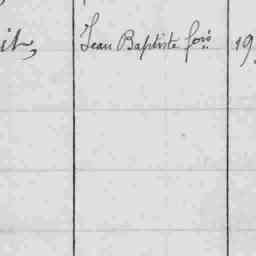 it, Jean Baptiste 19